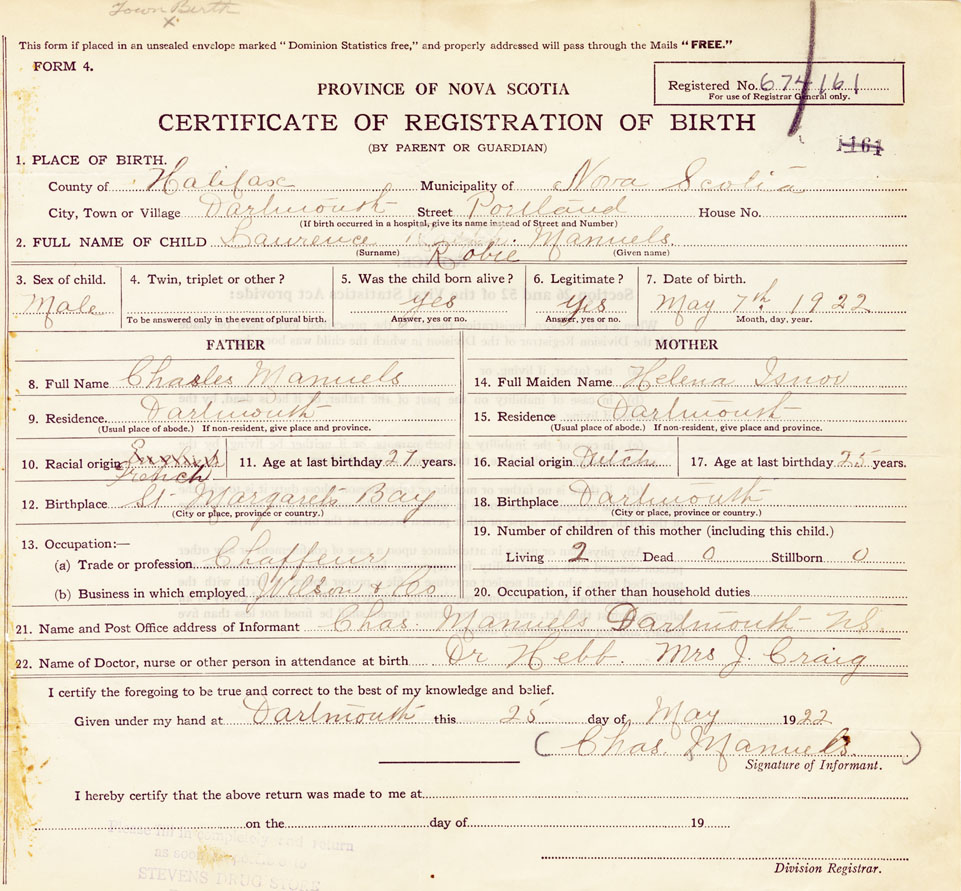 Town Birth
x
This form if placed in an unsealed envelope marked "Dominion Statistics free," and properly addressed will pass through the Mails "FREE."
FORM 4.
PROVINCE OF NOVA SCOTIA
Registered No. 674161
For use of Registrar General only.
CERTIFICATE OF REGISTRATION OF BIRTH
(BY PARENT OR GUARDIAN)
1161
1. PLACE OF BIRTH.
County of Halifax Municipality of Nova Scotia
City, Town or Village Dartmouth Street Portland House No.
(If birth occurred in a hospital, give its name instead of Street and Number)
2. FULL NAME OF CHILD Laurence Manuels.
(Surname) Robie (Given name)
3. Sex of child. 4. Twin, triplet or other? 5. Was the child born alive? 6. Legitimate? 7. Date of birth.
Male yes yes May 7th. 1922
To be answered only in the event of plural birth. Answer, yes or no. Answer, yes or no. Month, day, year.
FATHER MOTHER
8. Full Name Charles Manuels 14. Full Maiden Name Helena Isnor
9. Residence. Dartmouth 15. Residence Dartmouth
(Usual place of abode.) If non-resident, give place and province. (Usual place of abode.) If non-resident, give place and province.
10. Racial origin French 11. Age at last birthday 27 years. 16. Racial origin Dutch 17. Age at last birthday 25 years.
12. Birthplace St Margarets Bay 18. Birthplace Dartmouth
(City or place, province or country.) (City or place, province or country.)
13. Occupation:— 19. Number of children of this mother (including this child.)
(a) Trade or profession Chaffeur Living 2 Dead 0 Stillborn 0
(b) Business in which employed Wilson & Co 20. Occupation, if other than household duties.
21. Name and Post Office address of Informant Chas. Manuels Dartmouth NS.
22. Name of Doctor, nurse or other person in attendance at birth Dr Hebb. Mrs J. Craig
I certify the foregoing to be true and correct to the best of my knowledge and belief.
Given under my hand at Dartmouth this 25 day of May 1922
(Chas. Manuels)
Signature of Informant.
I hereby certify that the above return was made to me at
on the day of 19
Please fill in completely and return
as soon as possible to
STEVENS DRUG STORE
Division Registrar.